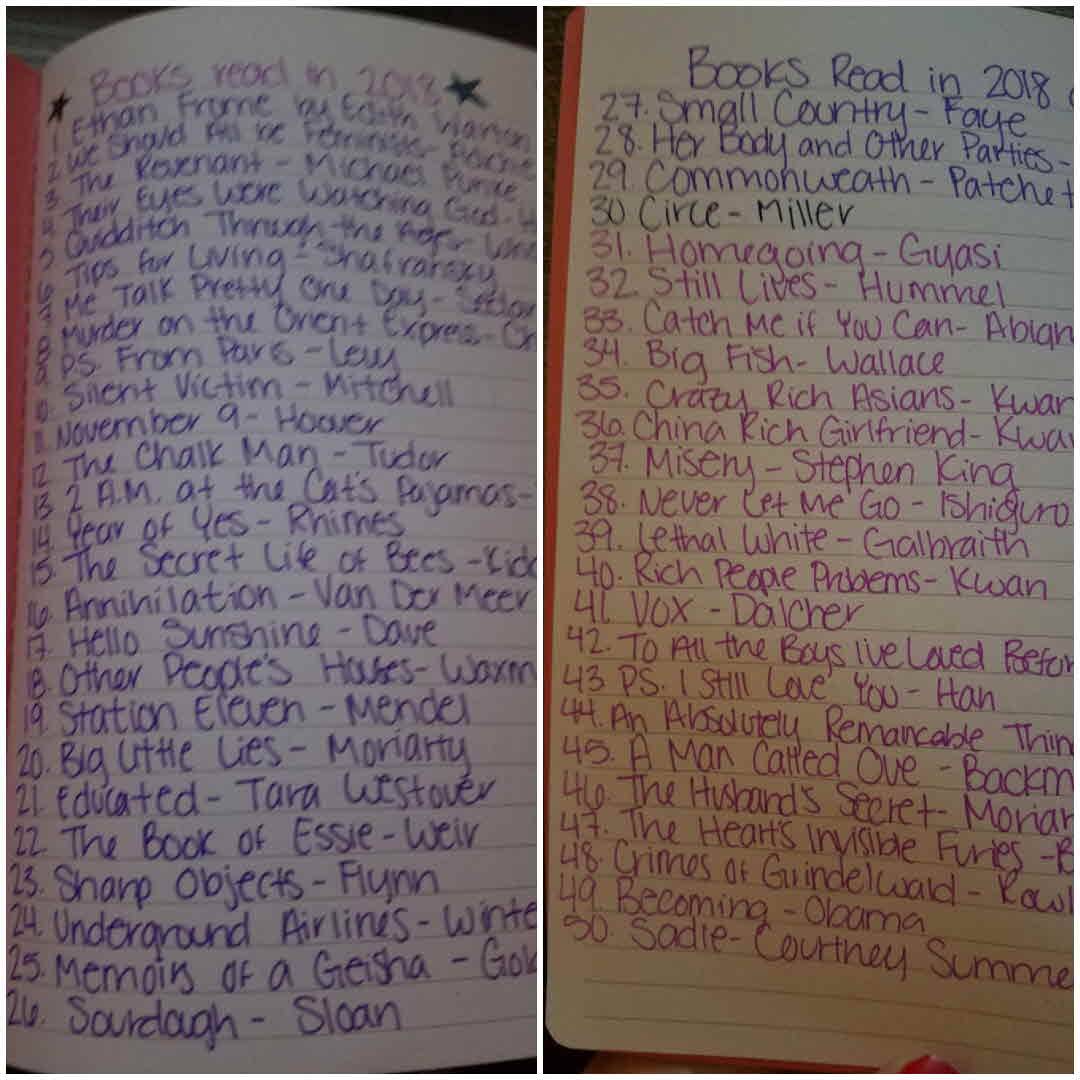 Books read in 2018
1 Ethan Frome by Edith Wharton
2 We Should All be Feminists-
3 The Revenant - Michael Punke
4 Their Eyes Were Watching God-
5 Quidditch Through the Ages-
6 Tips for Living -
7 Me Talk Pretty One Day - Sedar
8 Murder on the Orient Express- Ch
9 P.S. From Paris - Levy
10. Silent Victim - Mitchell
11. November 9 - Hoover
12 The Chalk Man - Tudor
13 2 A.M. at the Cat's Pajamas-
14. Year of Yes - Rhimes
15. The Secret Life of Bees - Kidd
16. Annihilation - Van Der Meer
17. Hello Sunshine - Dave
18. Other People's Houses- Waxm
19. Station Eleven - Mendel
20. Big Little Lies - Moriarty
21. Educated - Tara Westover
22. The Book of Essie - Weir
23. Sharp Objects - Flynn
24. Underground Airlines - Winte
25. Memoirs of a Geisha - Gold
26. Sourdough - Sloan
Books Read in 2018
27. Small Country - Faye
28. Her Body and Other Parties -
29. Commonweath - Patchet
30 Circe - Miller
31. Homegoing - Gyasi
32. Still Lives - Hummel
33. Catch Me if You Can - Abign
34. Big Fish - Wallace
35. Crazy Rich Asians - Kwan
36. China Rich Girlfriend - Kwa
37. Misery - Stephen King
38. Never Let Me Go - Ishiguro
39. Lethal White - Galbraith
40. Rich People Probems - Kwan
41. Vox - Dalcher
42. To All the Boys ive Loved Befor
43 P.S. I Still Love You - Han
44. An Absolutely Remarcable Thin
45. A Man Called Ove - Backm
46. The Husband's Secret - Moriar
47. The Heart's Invisible Furies - B
48. Crimes of Grindelwald - Rowl
49 Becoming - Obama
50. Sadie - Courtney Summe